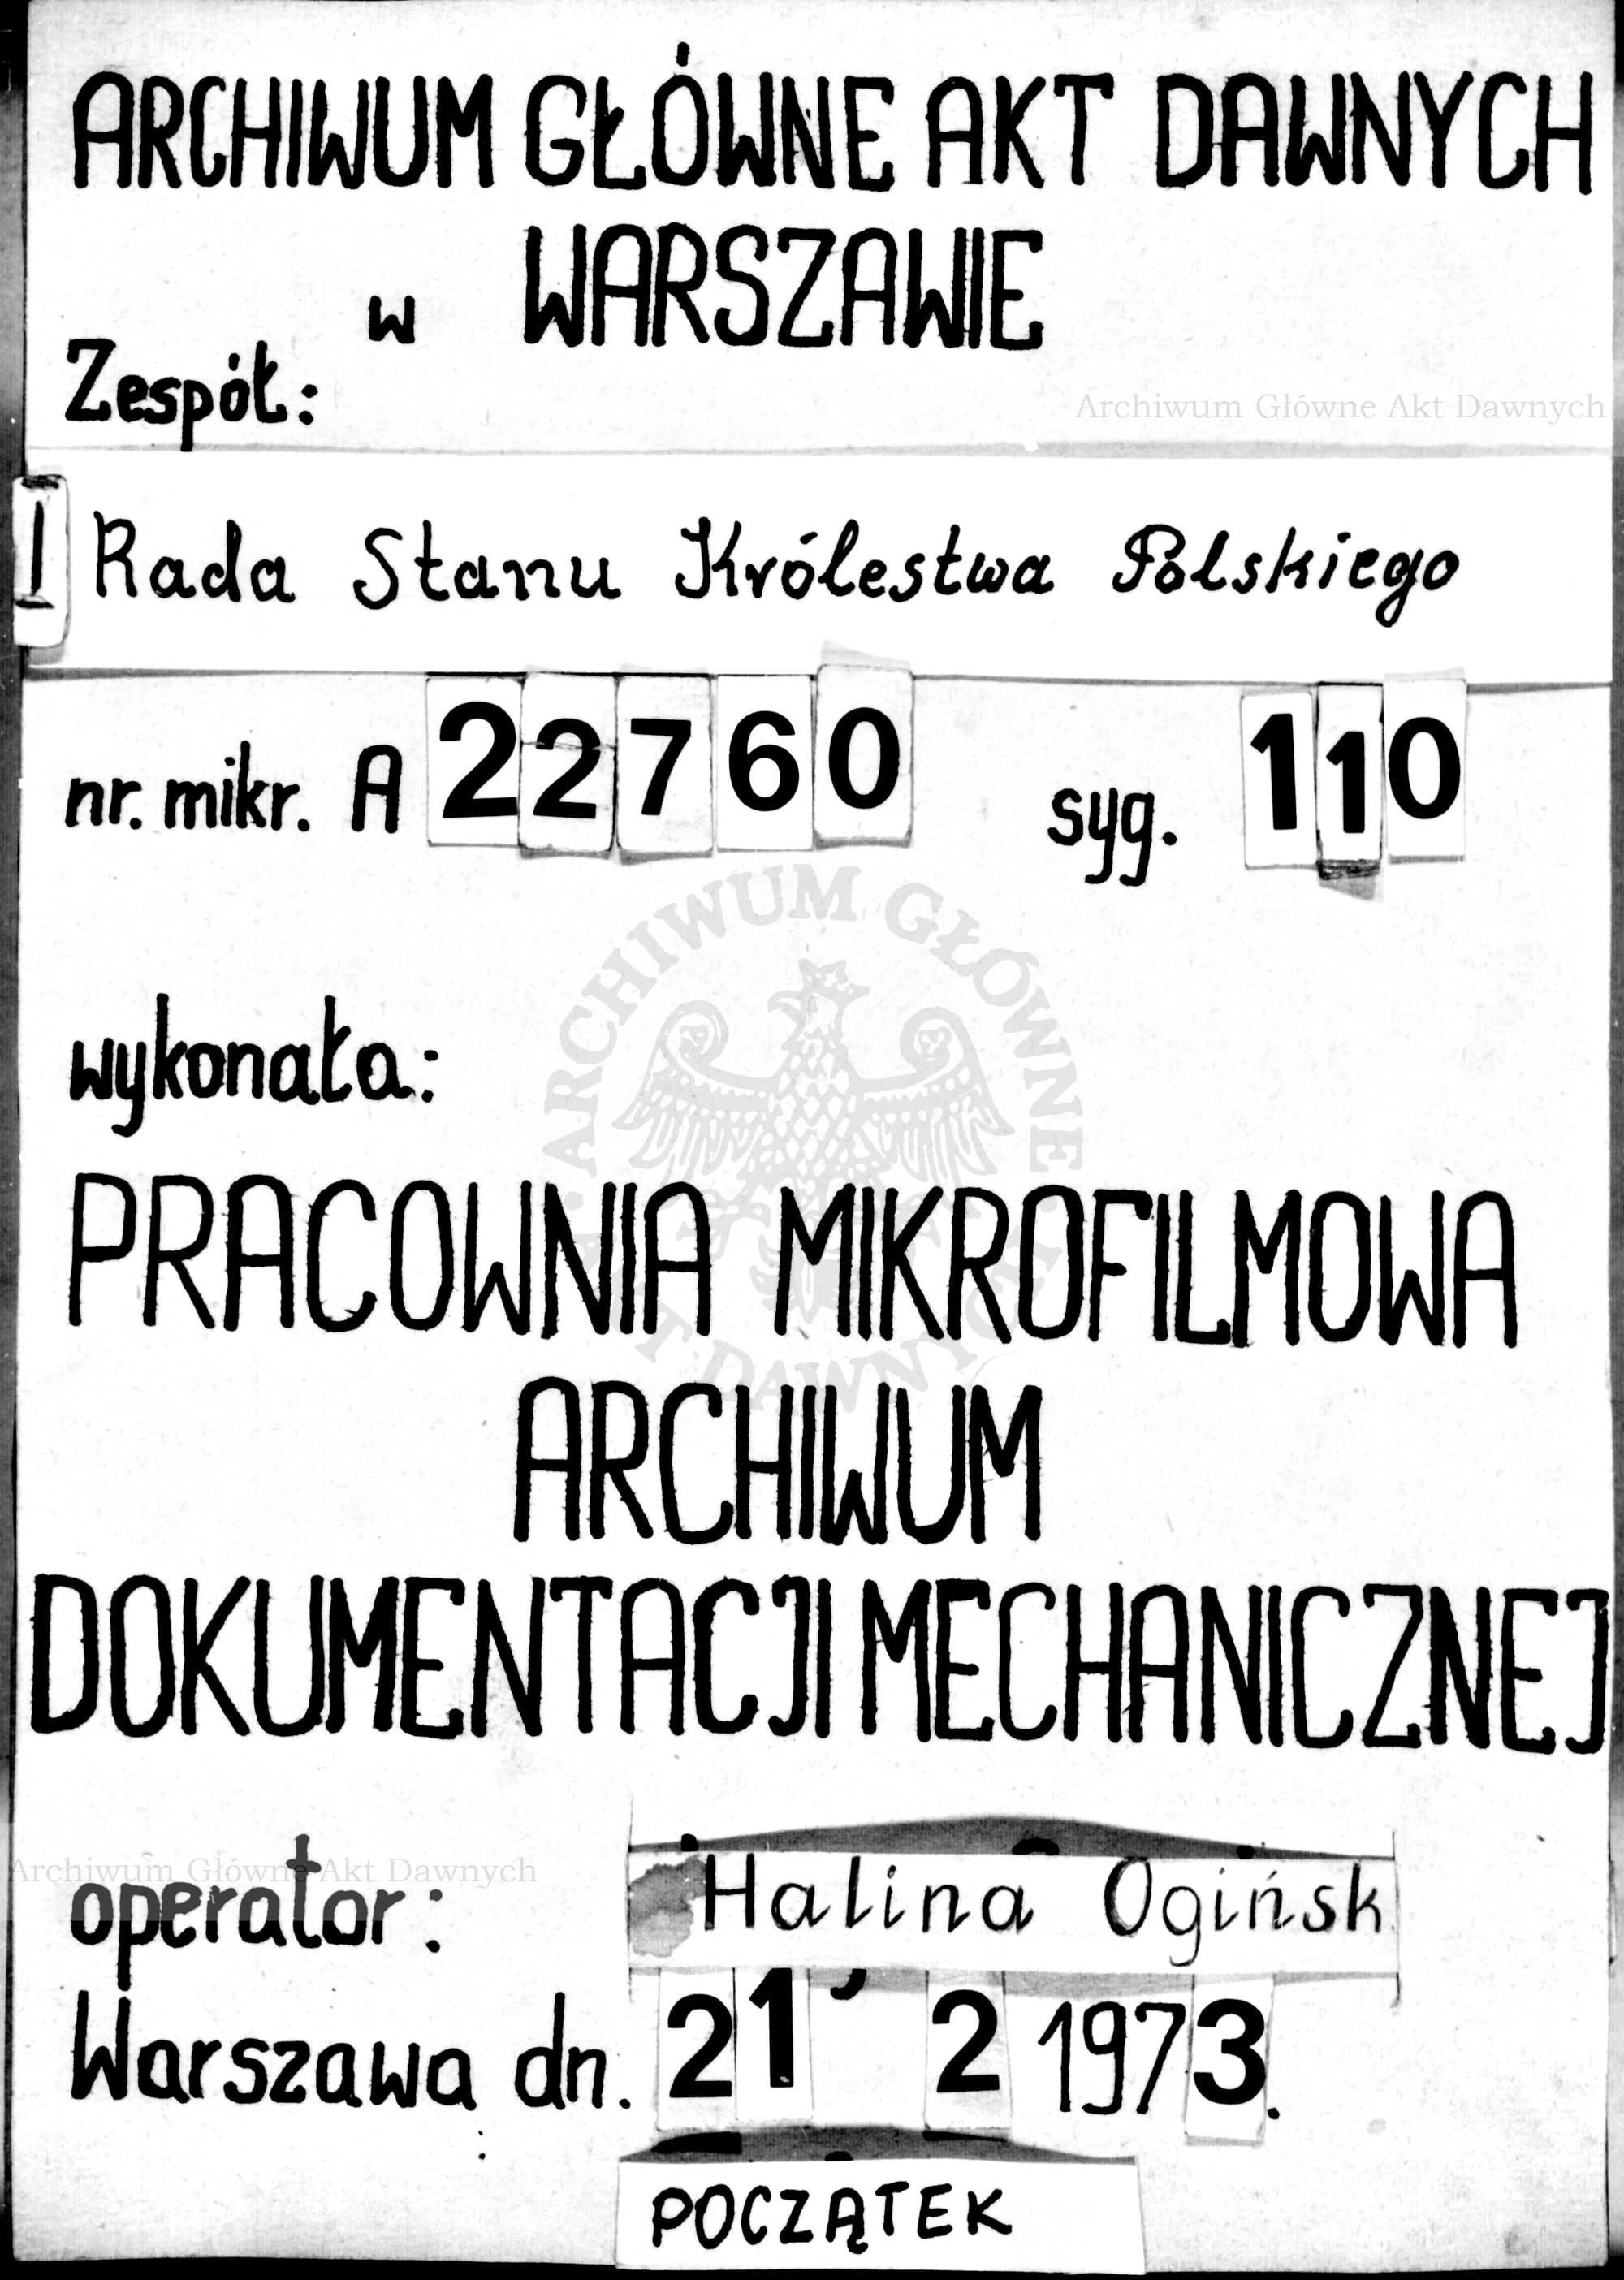 ARCHIWUM GŁÓWNE AKT DAWNYCH
w WARSZAWIE
Zespół:
Archiwum Główne Akt Dawnych
I Rada Stanu Królestwa Polskiego
nr. mikr. A 22760 syg. 110
ARCHIWUM GŁÓWNE AKT DAWNYCH
wykonała:
PRACOWNIA MIKROFILMOWA
ARCHIWUM
DOKUMENTACJI MECHANICZNEJ
Archiwum Główne Akt Dawnych
operator: Halina Ogińsk
Warszawa dn. 21 2 1973.
POCZĄTEK